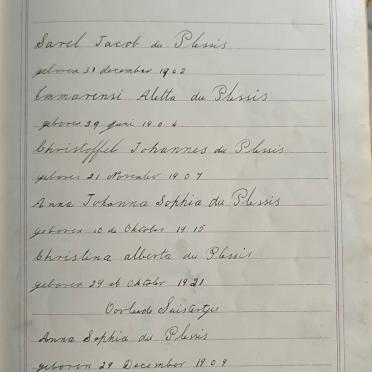 Sarel Jacob du Plessis
geboren 31 december 1902
Emmarensi Aletta du Plessis
geboren 29 Juni 1904
Christoffel Johannes du Plessis
geboren 21 November 1907
Anna Johanna Sophia du Plessis
geboren 10 de Oktober 1915
Christina alberta du Plessis
geboren 29 st Oktober 1921
Overlede Suistertje
Anna Sophia du Plessis
geboren 29 December 1909